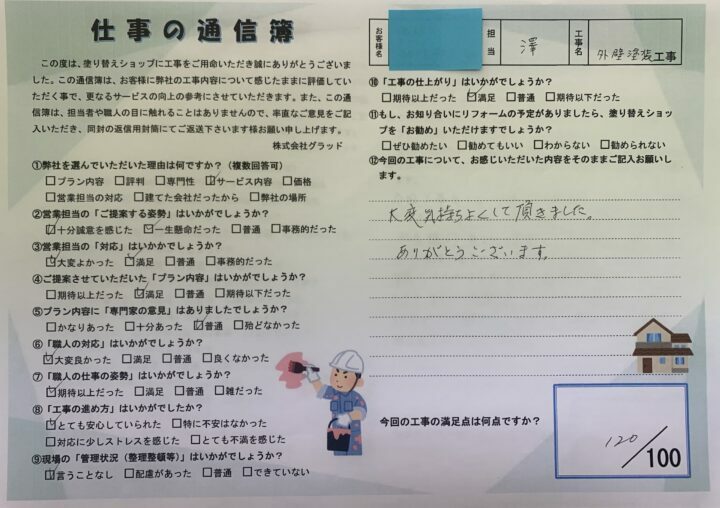 仕事の通信簿
この度は、塗り替えショップに工事をご用命いただき誠にありがとうございま
した。この通信簿は、お客様に弊社の工事内容について感じたままに評価してい
ただく事で、更なるサービスの向上の参考にさせていただきます。また、この通
信簿は、担当者や職人の目に触れることはありませんので、率直なご意見をご記
入いただき、同封の返信用封筒にてご返送下さいます様お願い申し上げます。
株式会社グラッド
①弊社を選んでいただいた理由は何ですか?(複数回答可)
□プラン内容 □評判 □専門性 ☑サービス内容 □価格
□営業担当の対応 □建てた会社だったから □弊社の場所
②営業担当の「ご提案する姿勢」はいかがでしょうか?
☑十分誠意を感じた ☑一生懸命だった □普通 □事務的だった
③営業担当の「対応」はいかかでしょうか?
☑大変よかった ☑満足 □普通 □事務的だった
④ご提案させていただいた「プラン内容」はいかがでしょうか?
□期待以上だった ☑満足 □普通 □期待以下だった
⑤プラン内容に「専門家の意見」はありましたでしょうか?
□かなりあった □十分あった ☑普通 □殆どなかった
⑥「職人の対応」はいかがでしょうか?
☑大変良かった □満足 □普通 □良くなかった
⑦「職人の仕事の姿勢」はいかがでしょうか?
☑期待以上だった □満足 □普通 □雑だった
⑧「工事の進め方」はいかがでしたか?
☑とても安心していられた □特に不安はなかった
□対応に少しストレスを感じた □とても不満を感じた
⑨現場の「管理状況(整理整頓等)」はいかがでしょうか?
☑言うことなし □配慮があった □普通 □できていない
お客様名 担当 澤 工事名 外壁塗装工事
⑩「工事の仕上がり」はいかがでしょうか?
□期待以上だった ☑満足 □普通 □期待以下だった
⑪もし、お知り合いにリフォームの予定がありましたら、塗り替えショッ
プを「お勧め」いただけますでしょうか?
□ぜひ勧めたい □勧めてもいい □わからない □勧められない
⑫今回の工事について、お感じいただいた内容をそのままご記入お願いし
ます。
大変気持ちよくして頂きました。
ありがとうございます。
今回の工事の満足点は何点ですか?
120/100